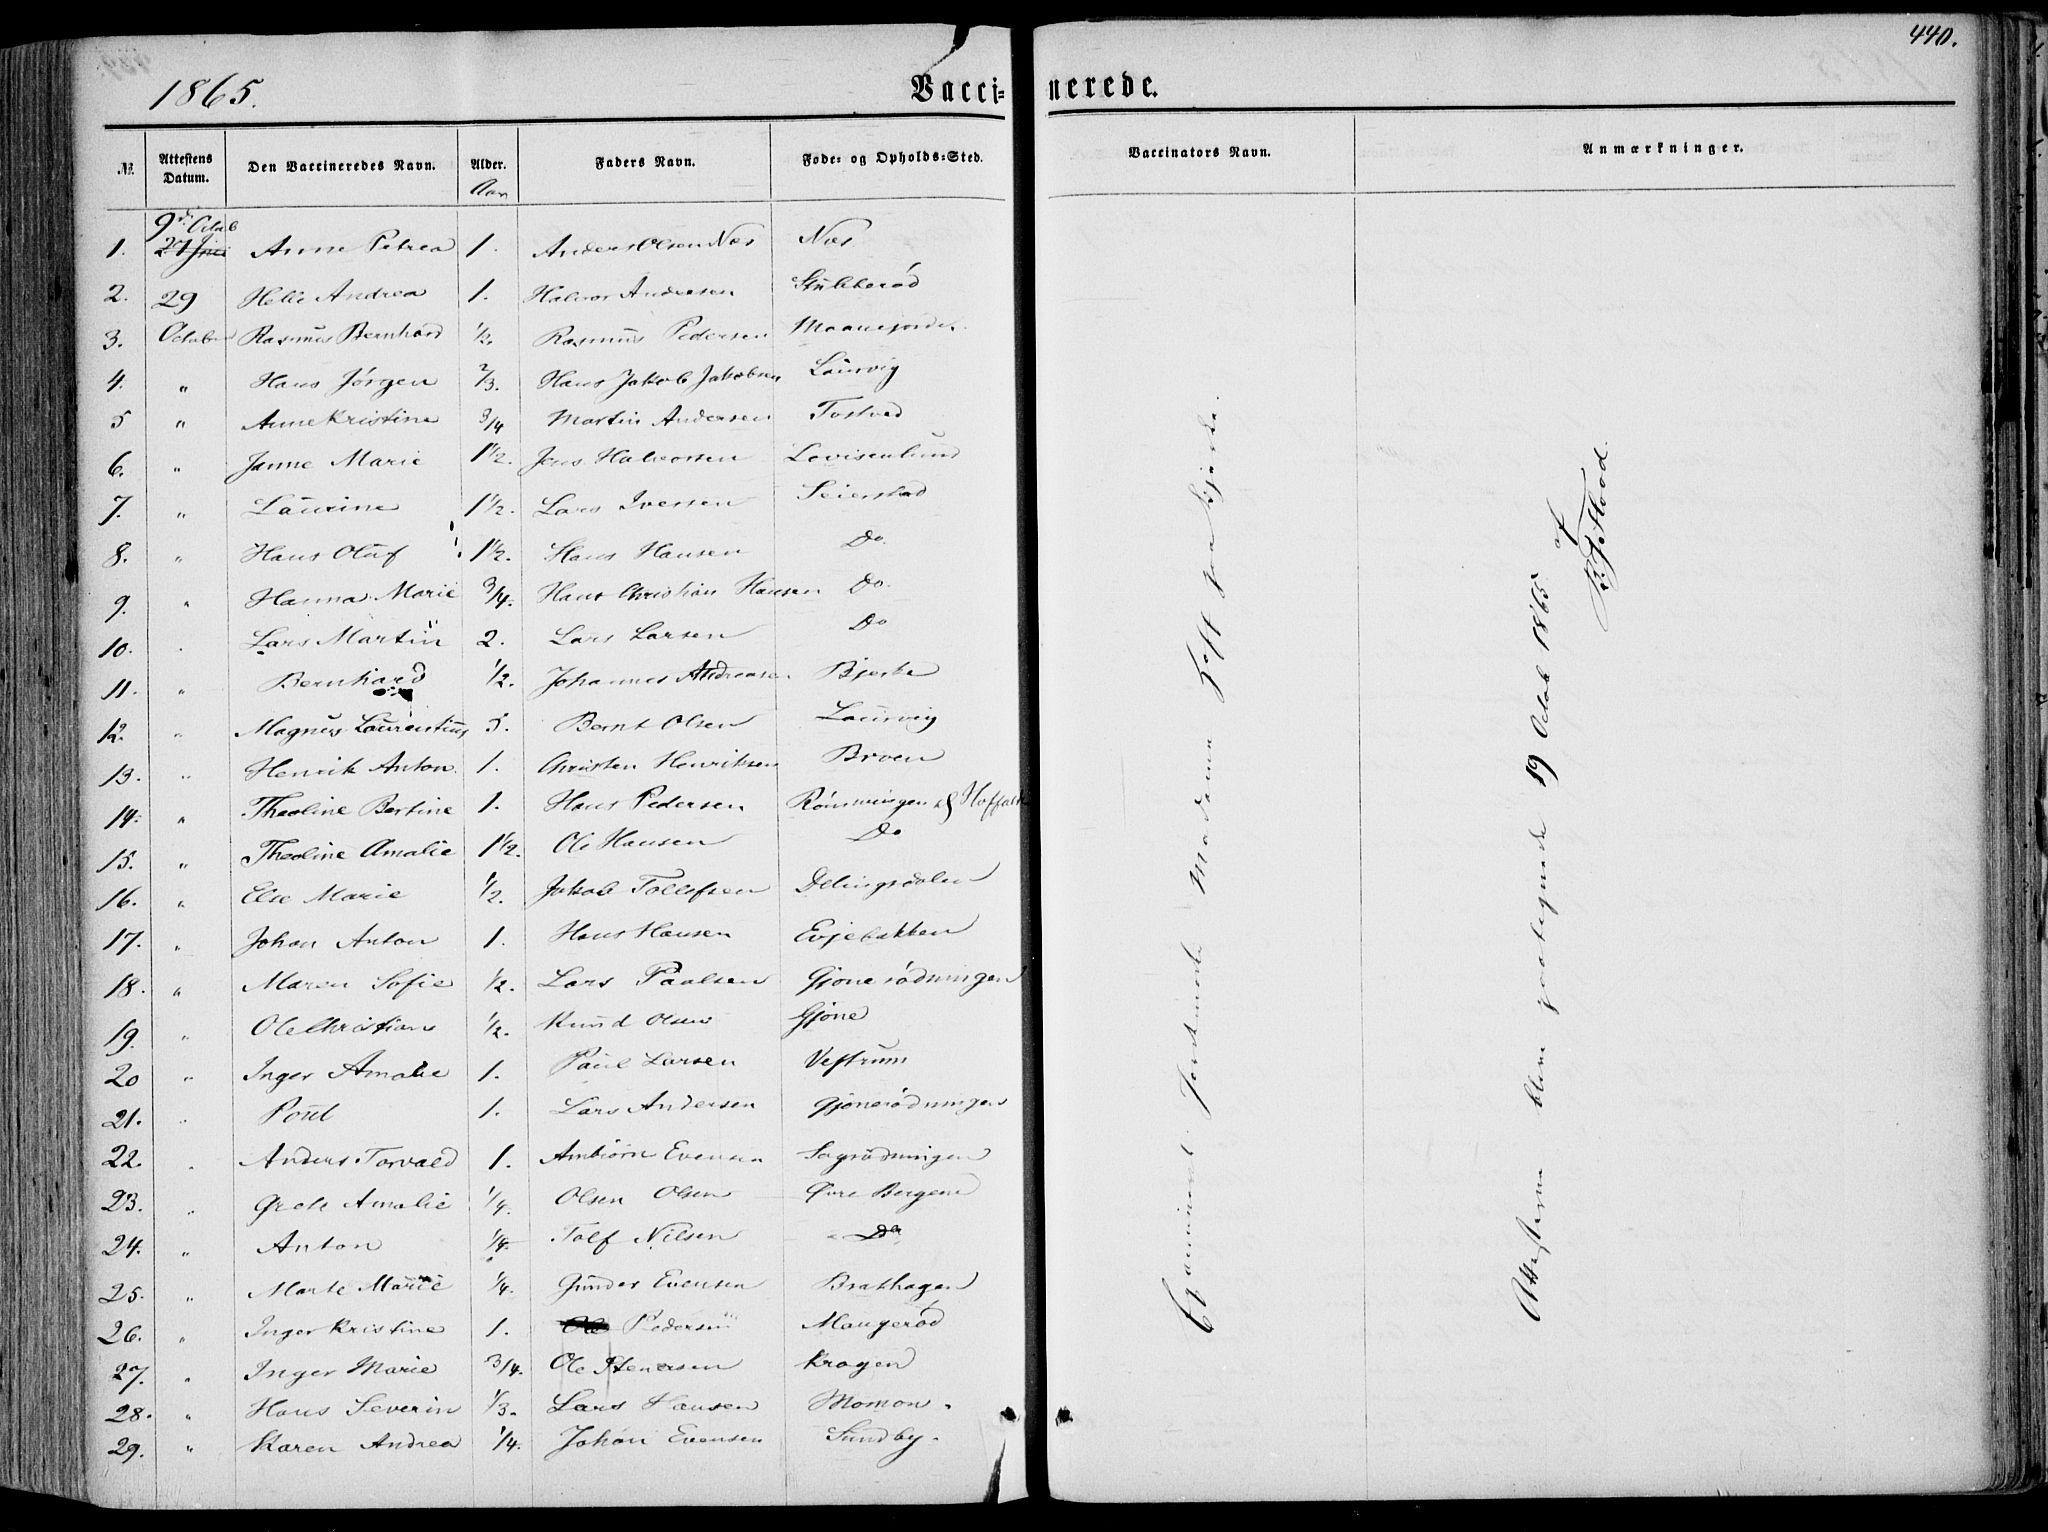 440.
1865. Vacci= nerede.
№ Attestens Datum. Den Vaccineredes Navn. Alder. Faders Navn. Føde= og Opholds=Sted. Vaccinators Navn. Anmærkninger.
Aar
9de Octob
1. 27 Juni Anne Petrea 1. Anders Olsen Næs Næs
2. 29 Helle Andrea 1. Halvor Andersen Stubberød
3. October Rasmus Bernhard 1/2. Rasmus Pedersen
4. " Hans Jørgen 2/3. Hans Jakob Jakobsen Laurvig
5 " Anne Kristine 3/4 Martin Andersen Tostved
6. " Janne Marie 1 1/2. Jens Halvorsen Lovisenlund
7. " Laurine 1 1/2. Lars Iversen Seierstad
8. " Hans Oluf 1 1/2. Hans Hansen Do.
9. " Hanna Marie 3/4. Hans Christian Hansen Do.
10. Lars Martin 2. Lars Larsen Do
11. " Bernhard 1/2. Johannes Andreasen Bjerke
12. " Magnus Laurentius 5. Bernt Olsen Laurvig
13. " Henrik Anton. 1. Christen Henriksen Broen
14. " Theoline Bertine 1. Hans Pedersen Rønningen
15. " Theoline Amalie 1 1/2. Ole Hansen Do
16. " Else Marie 1/2. Jakob Tollefsen Delingsdalen
17. " Johan Anton 1. Hans Hansen Evjebakken
18. " Maren Sofie 1/2. Lars Paulsen Gjonerødningen
19. " Ole Christian 1/2. Knud Olsen Gjone
20 " Inger Amalie 1. Paul Larsen Vestrum
21. " Poul 1. Lars Andersen Gjonerødningen
22. " Anders Torvald 1. Ambiørn Evensen Sagrødningen
23. " Grete Amalie 1/4. Olsen Olsen Øvre Bergene
24. " Anton 1/4. Tolf Nilsen Do
25. " Marte Marie 1/4. Gunder Evensen Brathagen
26. " Inger Kristine 1. Ole Pedersen Maugerød
27. " Inger Marie 3/4. Ole Stenersen Kragen
28. " Hans Severin 1/3. Lars Hansen Momon.
29. " Karen Andrea 1/4. Johan Evensen Sundby.
Examineret Jordmoder Madame Hoft fra Kjose.
Attesterne blev paategnede 19 Octob 1865 af
Flood.